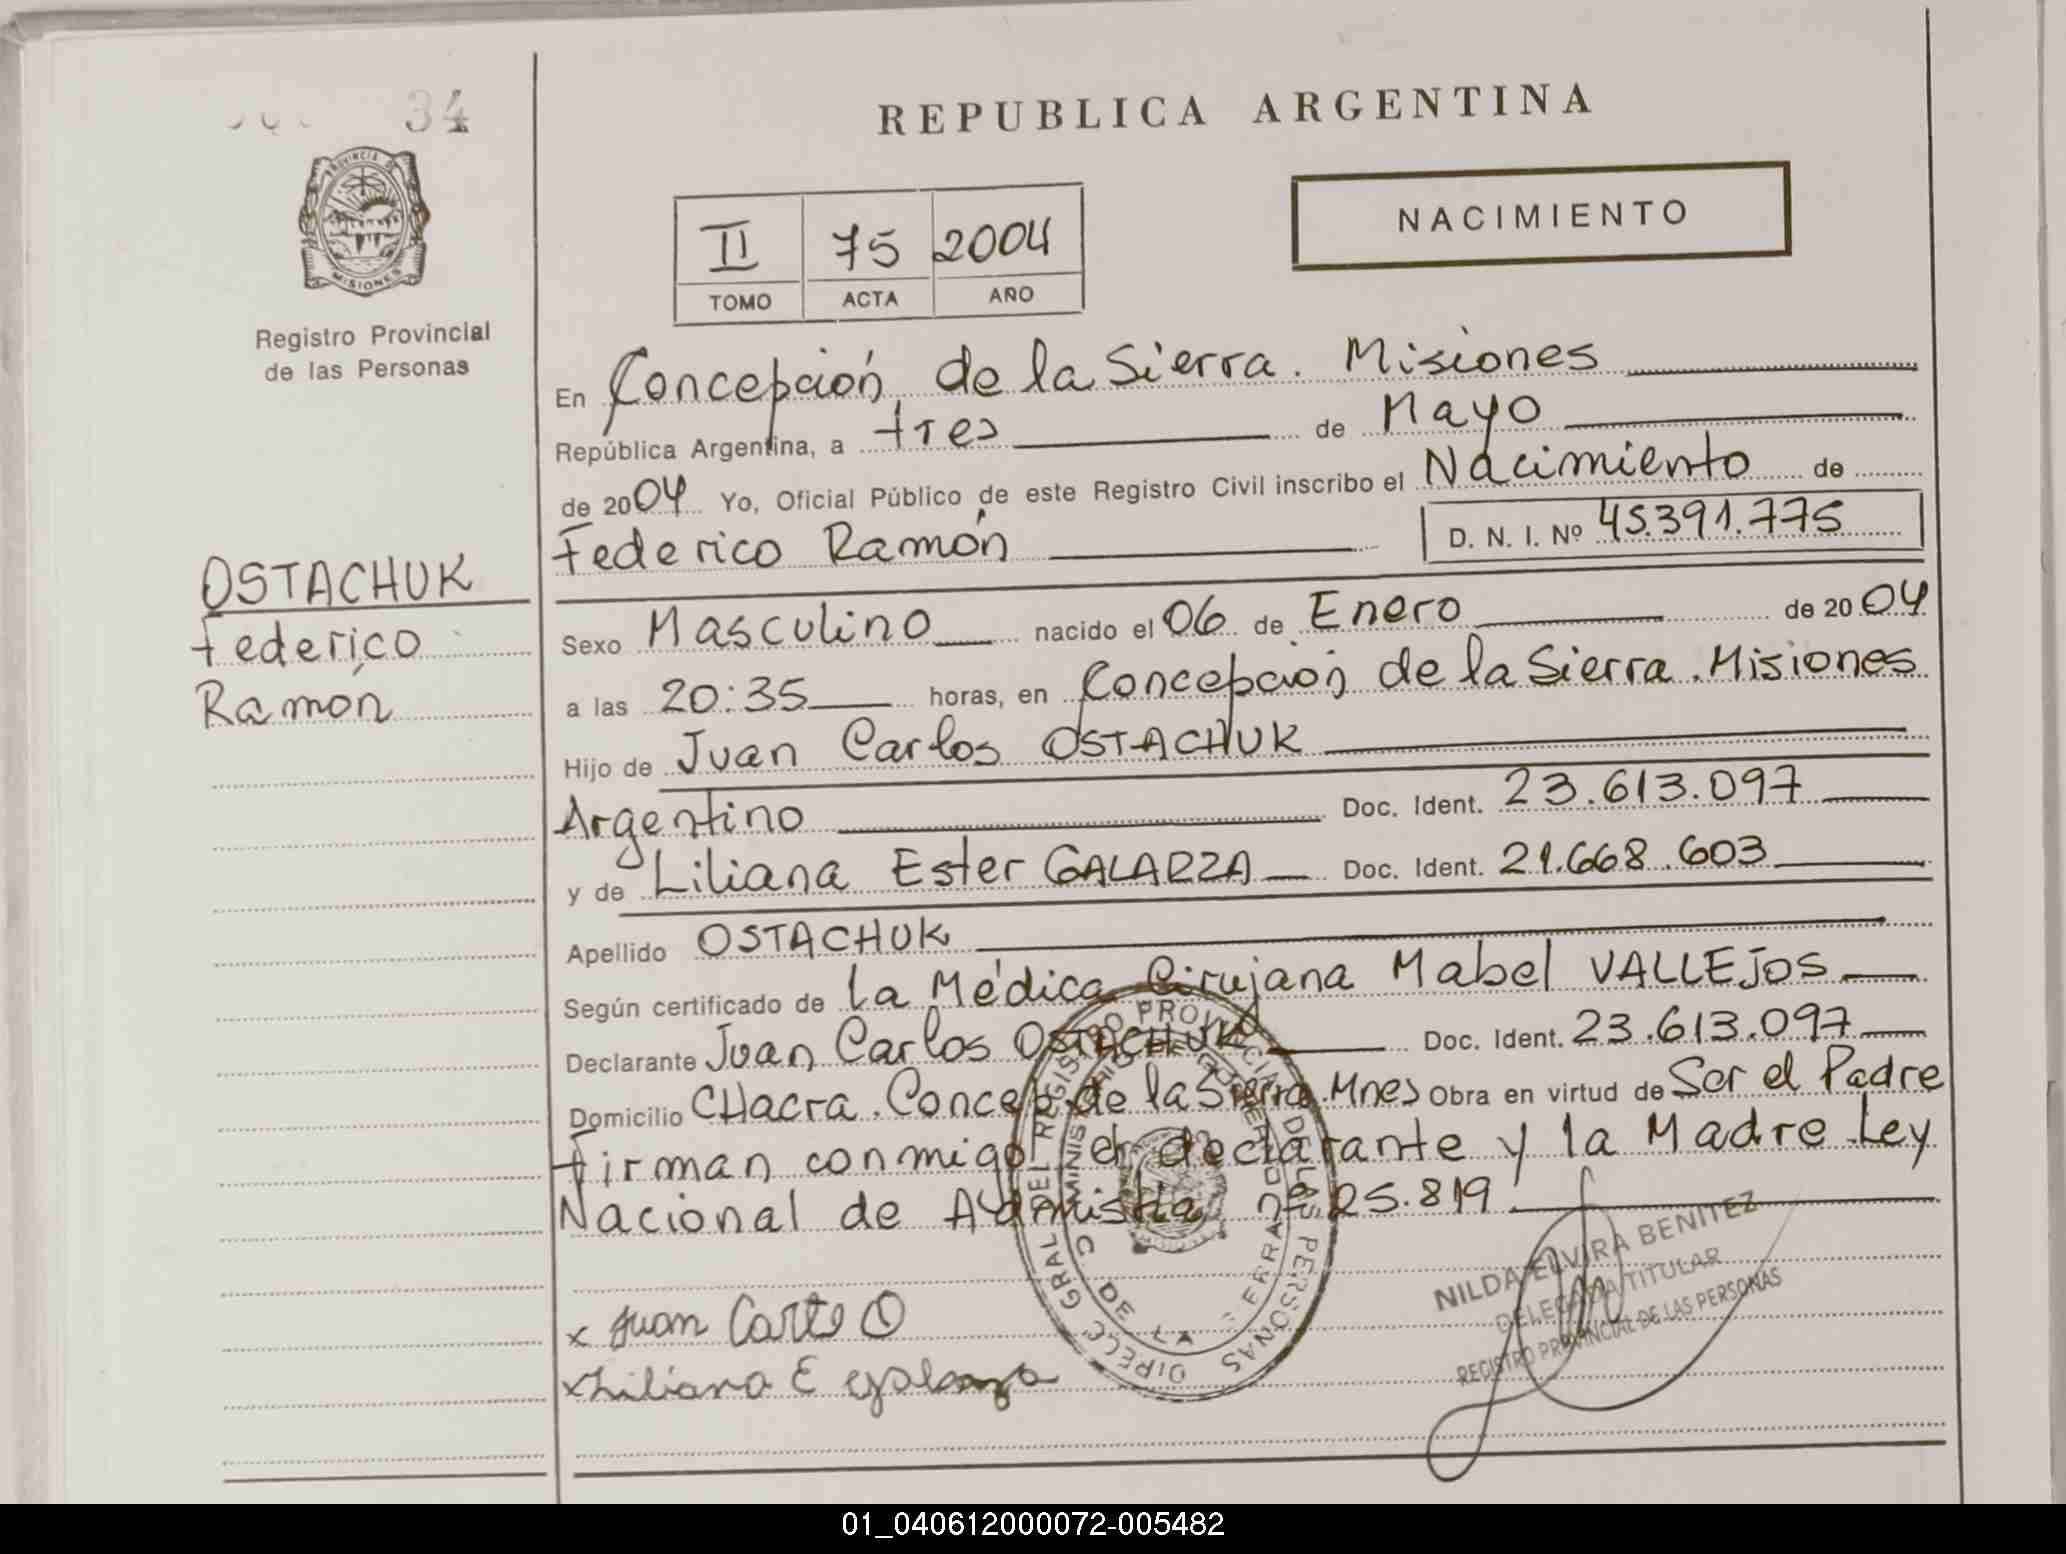 34
PROVINCIA DE
MISIONES
Registro Provincial
de las Personas
OSTACHUK
Federico
Ramón
REPUBLICA ARGENTINA
NACIMIENTO
II 75 2004
TOMO ACTA AÑO
En Concepción de la Sierra. Misiones
República Argentina, a tres de Mayo
de 2004 Yo, Oficial Público de este Registro Civil inscribo el Nacimiento de
Federico Ramón D. N. I. Nº 45.391.775
Sexo Masculino nacido el 06 de Enero de 2004
a las 20:35 horas, en Concepción de la Sierra. Misiones
Hijo de Juan Carlos OSTACHUK
Argentino Doc. Ident. 23.613.097
y de Liliana Ester GALARZA Doc. Ident. 21.668.603
Apellido OSTACHUK
Según certificado de la Médica Cirujana Mabel VALLEJOS
Declarante Juan Carlos OSTACHUK Doc. Ident. 23.613.097
Domicilio CHacra. Concep. de la Sierra. Mnes Obra en virtud de Ser el Padre
Firman conmigo el declarante y la Madre Ley
Nacional de nº 25.819
x Juan Carlos O
x Liliana E galarza
DIRECC GRAL DEL REGISTRO PROVINCIAL DE LAS PERSONAS
NILDA ELVIRA BENITEZ
DELEGADA TITULAR
REGISTRO PROVINCIAL DE LAS PERSONAS
01_040612000072-005482